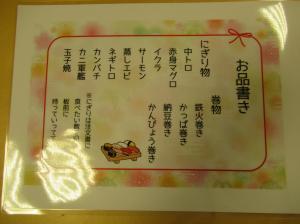 お品書き
にぎり物
中トロ
赤身マグロ
イクラ
サーモン
蒸しエビ
ネギトロ
カンパチ
カニ軍艦
玉子焼
巻物
鉄火巻き
かっぱ巻き
納豆巻き
かんぴょう巻き
※にぎりは注文書に
食べたい数
板前に
持っていって